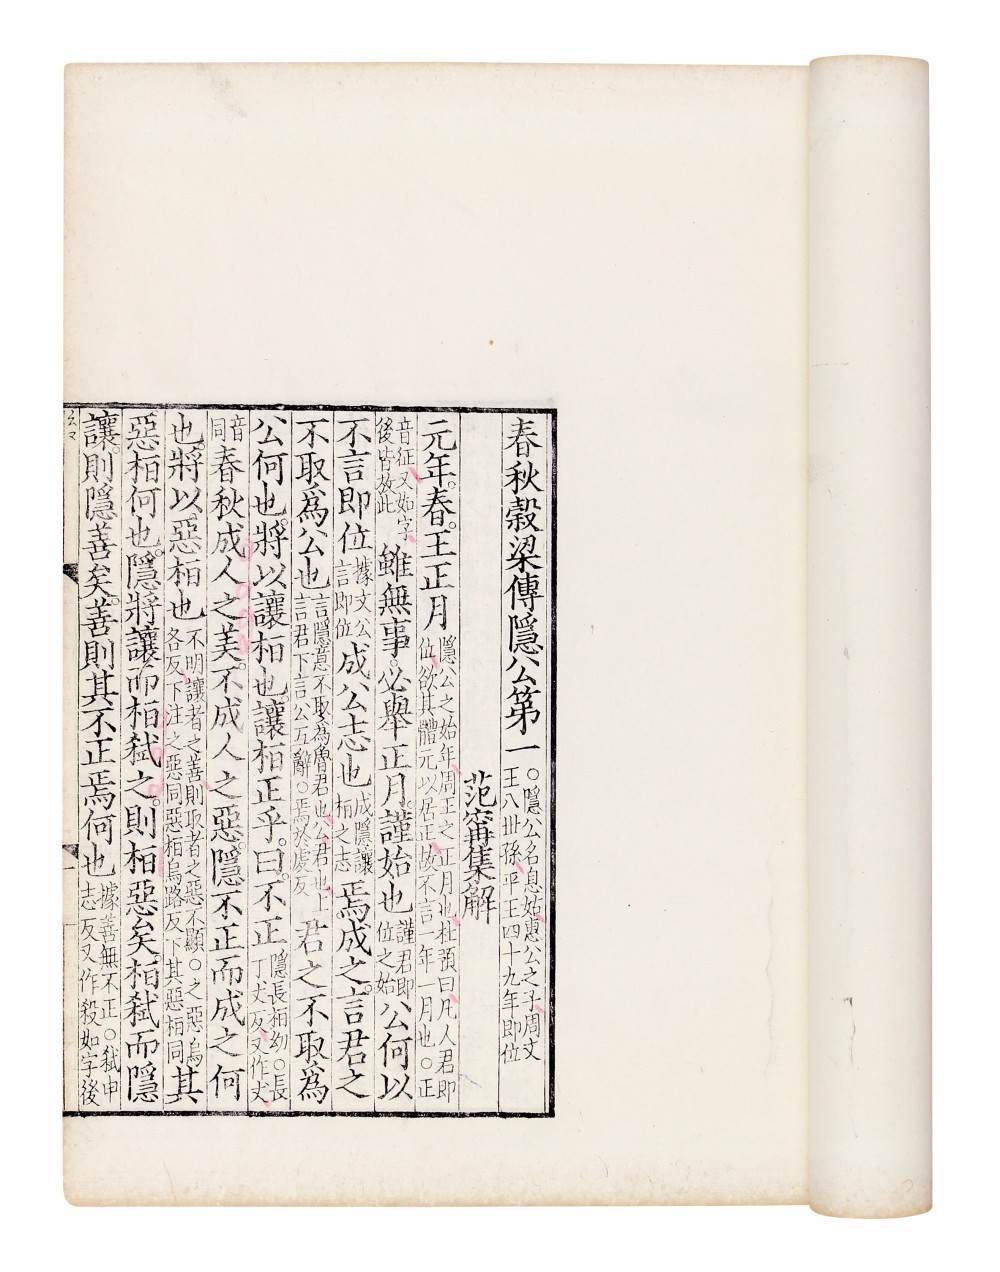 春秋穀梁傳隱公第一○隱公名息姑惠公之子周文王八丗孫平王四十九年即位
范甯集解
元年。春。王正月隱公之始年周王之正月也杜預曰凡人君即位欲其體元以居正故不言一年一月也○正
音征又如字後皆放此雖無事。必舉正月。謹始也謹君即位之始公何以
不言即位據文公言即位成公志也成隱讓桓之志焉成之。言君之
不取爲公也言隱意不取爲魯君也公君也上言君下言公互辭○焉於虔反君之不取爲
公何也。將以讓桓也。讓桓正乎。曰。不正隱長桓幼○長丁丈反又作丈
音同春秋成人之美。不成人之惡。隱不正而成之何
也。將以惡桓也不明讓者之善則取者之惡不顯○之惡烏各反下注之惡同惡桓烏路反下其惡桓同其
惡桓何也。隱將讓而桓弒之。則桓惡矣。桓弒而隱
讓。則隱善矣。善則其不正焉何也據善無不正○弒申志反又作殺如字後